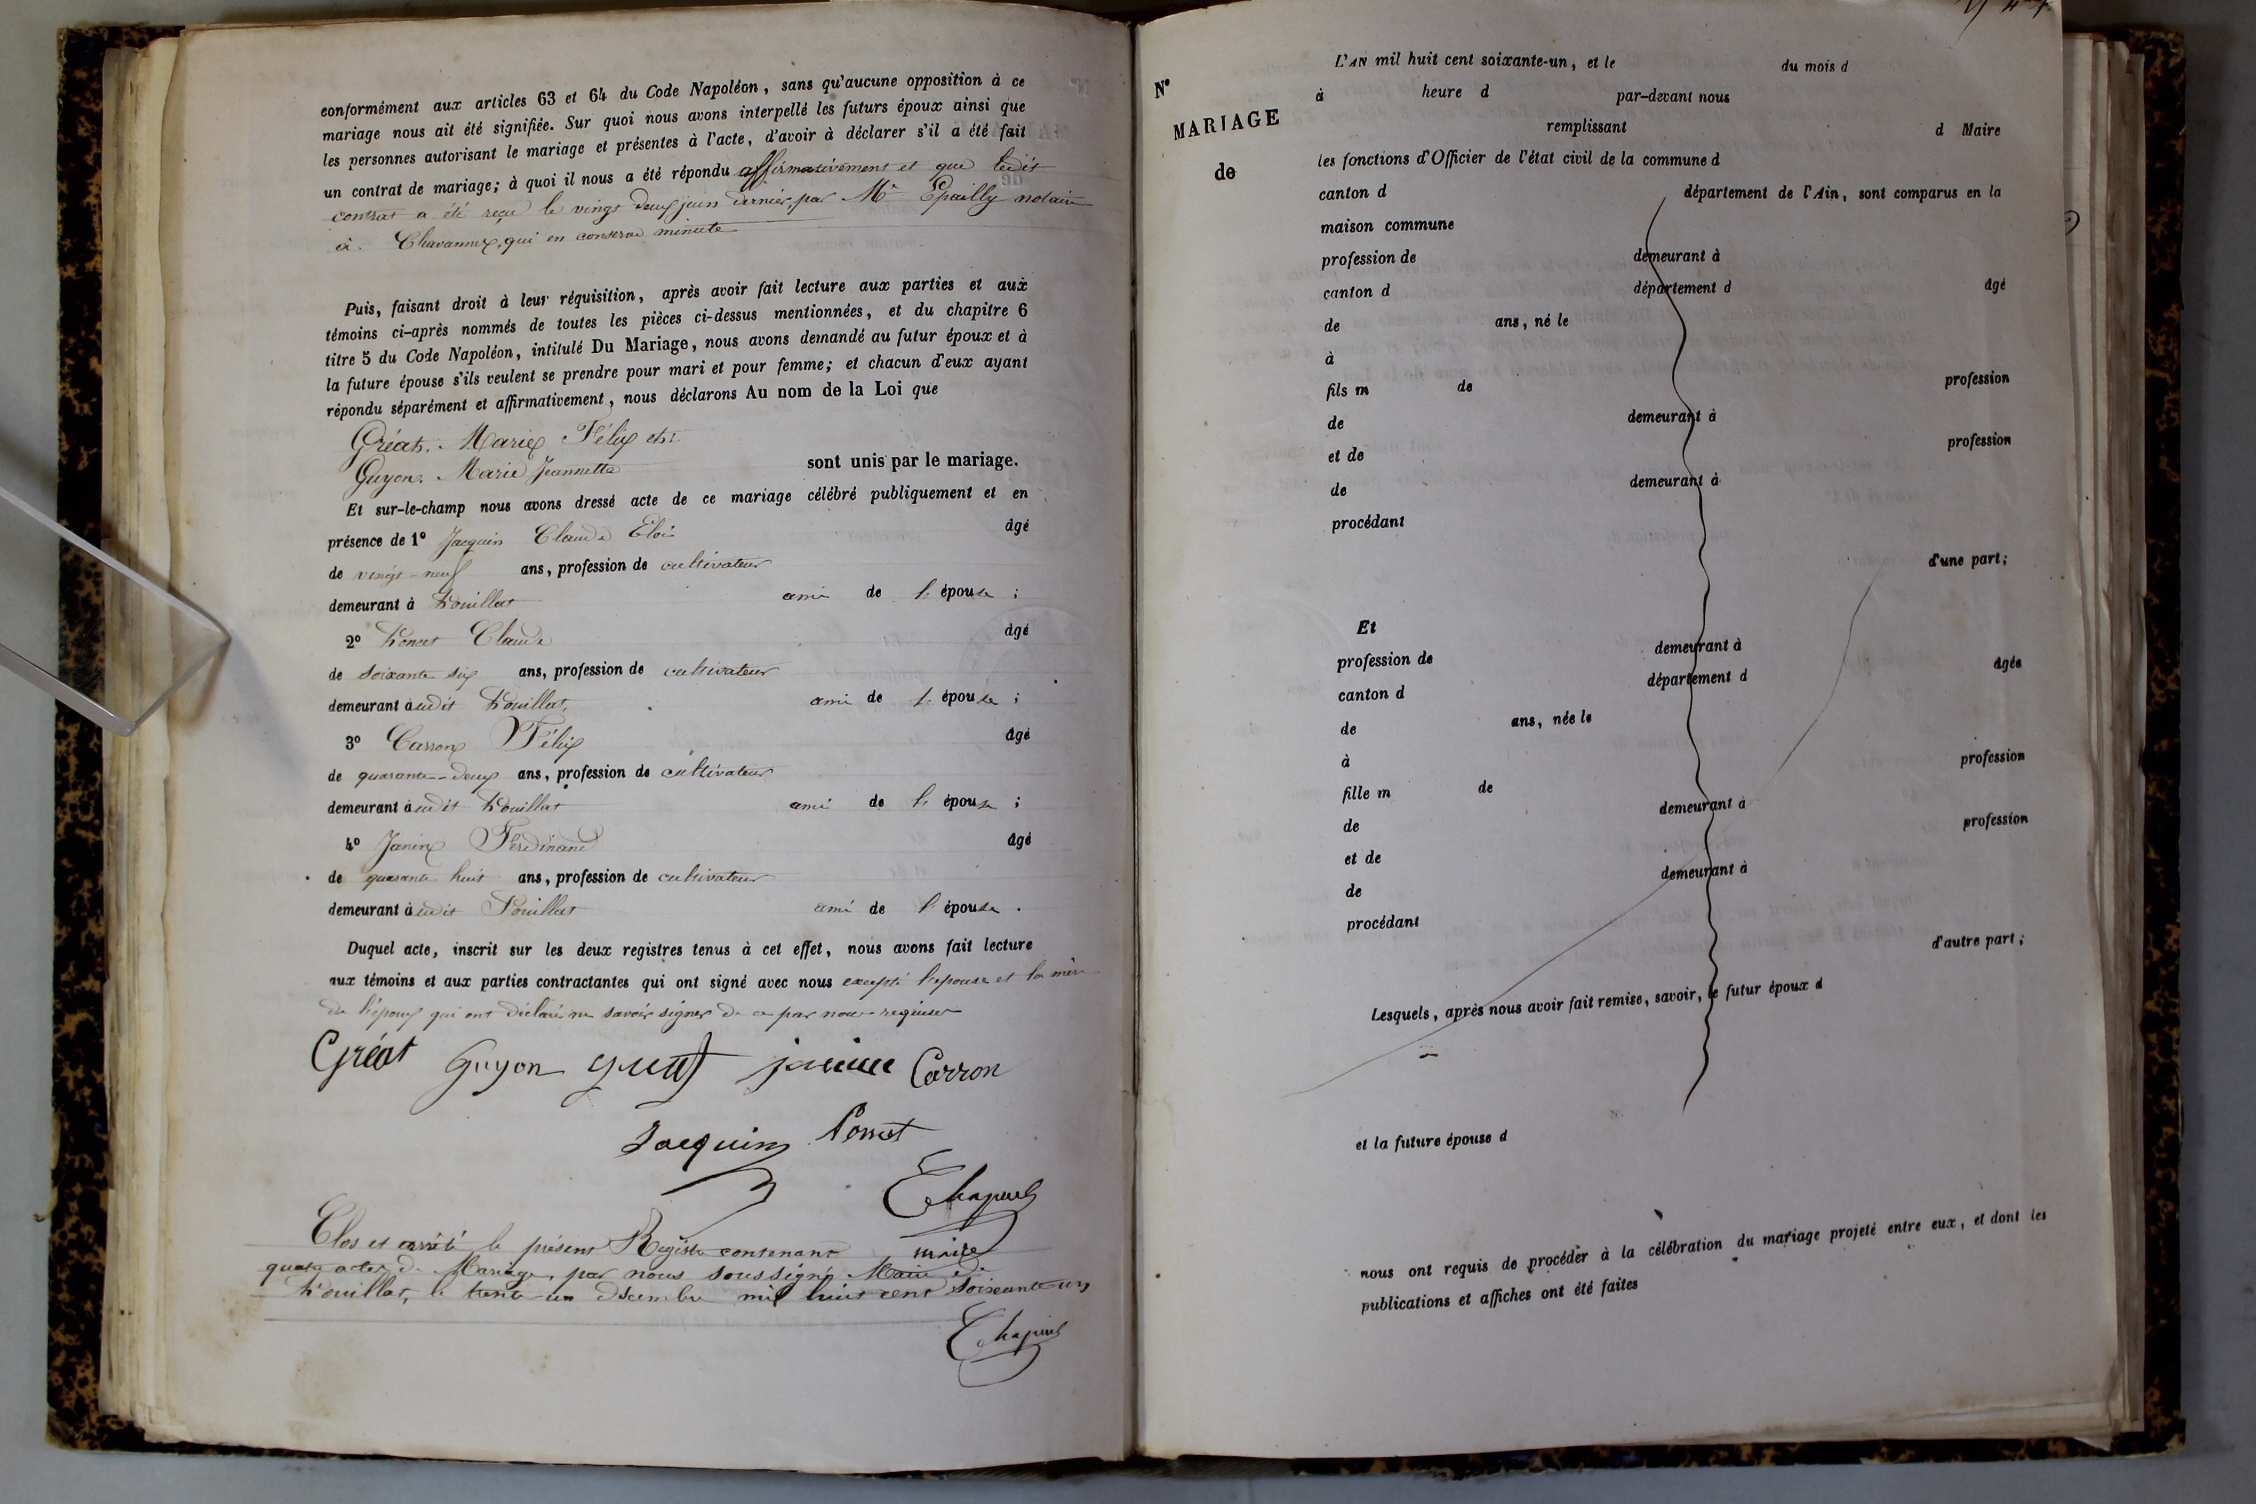 conformément aux articles 63 et 64 du Code Napoléon, sans qu'aucune opposition à ce
mariage nous ait été signifiée. Sur quoi nous avons interpellé les futurs époux ainsi que
les personnes autorisant le mariage et présentes à l'acte, d'avoir à déclarer s'il a été fait
un contrat de mariage; à quoi il nous a été répondu affirmativement et que ledit
contrat a été reçu le vingt deux juin dernier, par Me Epailly notaire
à Chavannes, qui en conserve minute
Puis, faisant droit à leur réquisition, après avoir fait lecture aux parties et aux
témoins ci-après nommés de toutes les pièces ci-dessus mentionnées, et du chapitre 6
titre 5 du Code Napoléon, intitulé Du Mariage, nous avons demandé au futur époux et à
la future épouse s'ils veulent se prendre pour mari et pour femme; et chacun d'eux ayant
répondu séparément et affirmativement, nous déclarons Au nom de la Loi que
Gréat, Marie Félix et
Guyon, Marie Jeannette sont unis par le mariage.
Et sur-le-champ nous avons dressé acte de ce mariage célébré publiquement et en
présence de 1º Jacquin Claude Eloi âgé
de vingt-neuf ans, profession de cultivateur
demeurant à Pouillat ami de l'épouse ;
2º Poncet Claude âgé
de soixante six ans, profession de cultivateur
demeurant audit Pouillat, ami de l'épouse ;
3º Carron Félix âgé
de quarante-deux ans, profession de cultivateur
demeurant audit Pouillat ami de l'épouse ;
4º Janin Ferdinand âgé
de quarante huit ans, profession de cultivateur
demeurant audit Pouillat ami de l'épouse .
Duquel acte, inscrit sur les deux registres tenus à cet effet, nous avons fait lecture
aux témoins et aux parties contractantes qui ont signé avec nous excepté l'épouse et la mère
de l'époux qui ont déclaré ne savoir signer de ce par nous requises
Gréat Guyon Carron
Jacquin Poncet
Chapuis
maire
Clos et arrêté le présent Registre contenant
quatre actes de Mariage, par nous soussigné Maire de
Pouillat, le trente-un décembre mil huit cent soixante-un
Chapuis
Nº
MARIAGE
de
L'AN mil huit cent soixante-un, et le du mois d
à heure d par-devant nous
remplissant d Maire
les fonctions d'Officier de l'état civil de la commune d
canton d département de l'Ain, sont comparus en la
maison commune
profession de demeurant à
canton d département d âgé
de ans, né le
à
fils m de profession
de demeurant à
et de profession
de demeurant à
procédant
d'une part;
Et
profession de demeurant à
canton d département d âgée
de ans, née le
à
fille m de profession
de demeurant à
et de profession
de demeurant à
procédant
d'autre part;
Lesquels, après nous avoir fait remise, savoir, le futur époux d
et la future épouse d
nous ont requis de procéder à la célébration du mariage projeté entre eux, et dont les
publications et affiches ont été faites